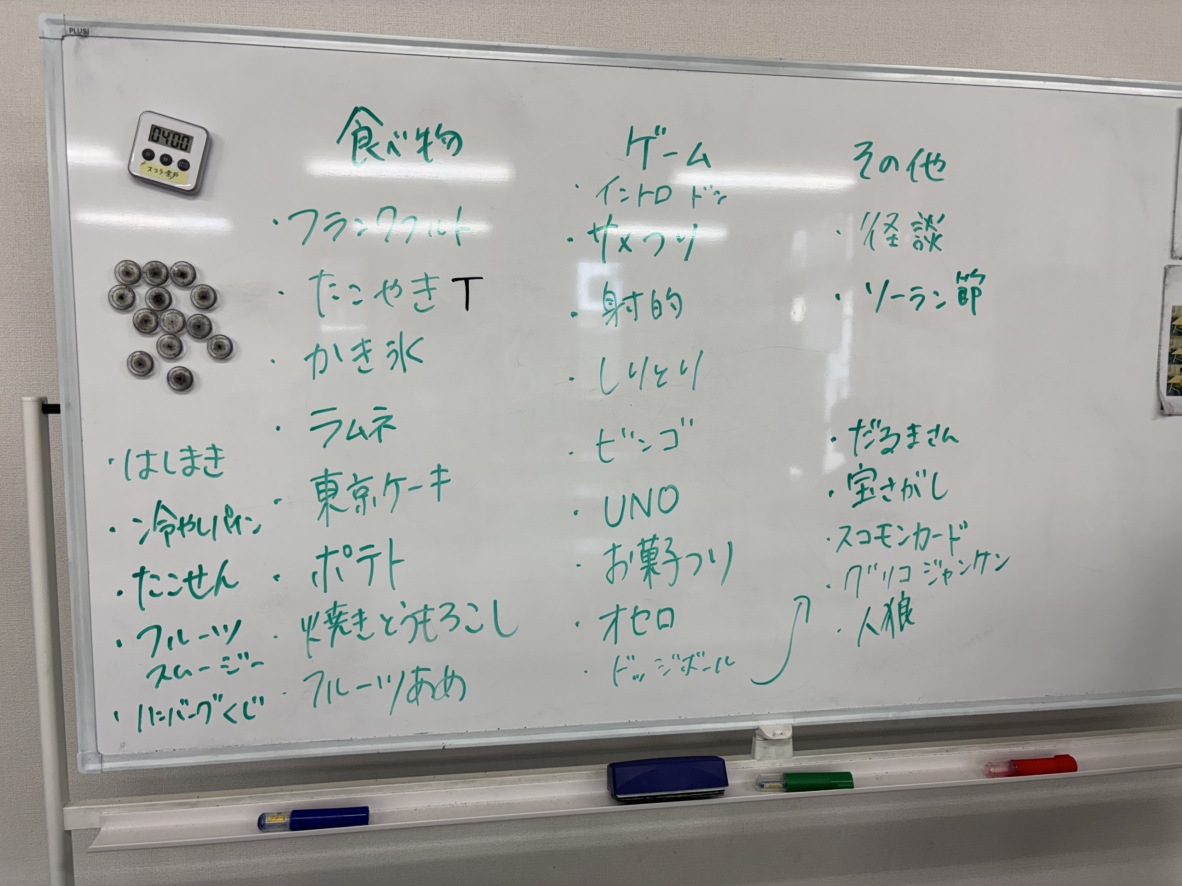 PLUS
0400
食べ物
・フランクフルト
・たこやきT
・かき氷
・ラムネ
・東京ケーキ
・ポテト
・焼きとうもろこし
・フルーツあめ
・はしまき
・冷やしパイン
・たこせん
・フルーツ
スムージー
・ハンバーグくじ
ゲーム
・イントロドン
・サメつり
・射的
・しりとり
・ビンゴ
・UNO
・お菓子つり
・オセロ
・ドッジボール
・だるまさん
・宝さがし
・スコモンカード
・グリコジャンケン
・人狼
その他
・怪談
・ソーラン節